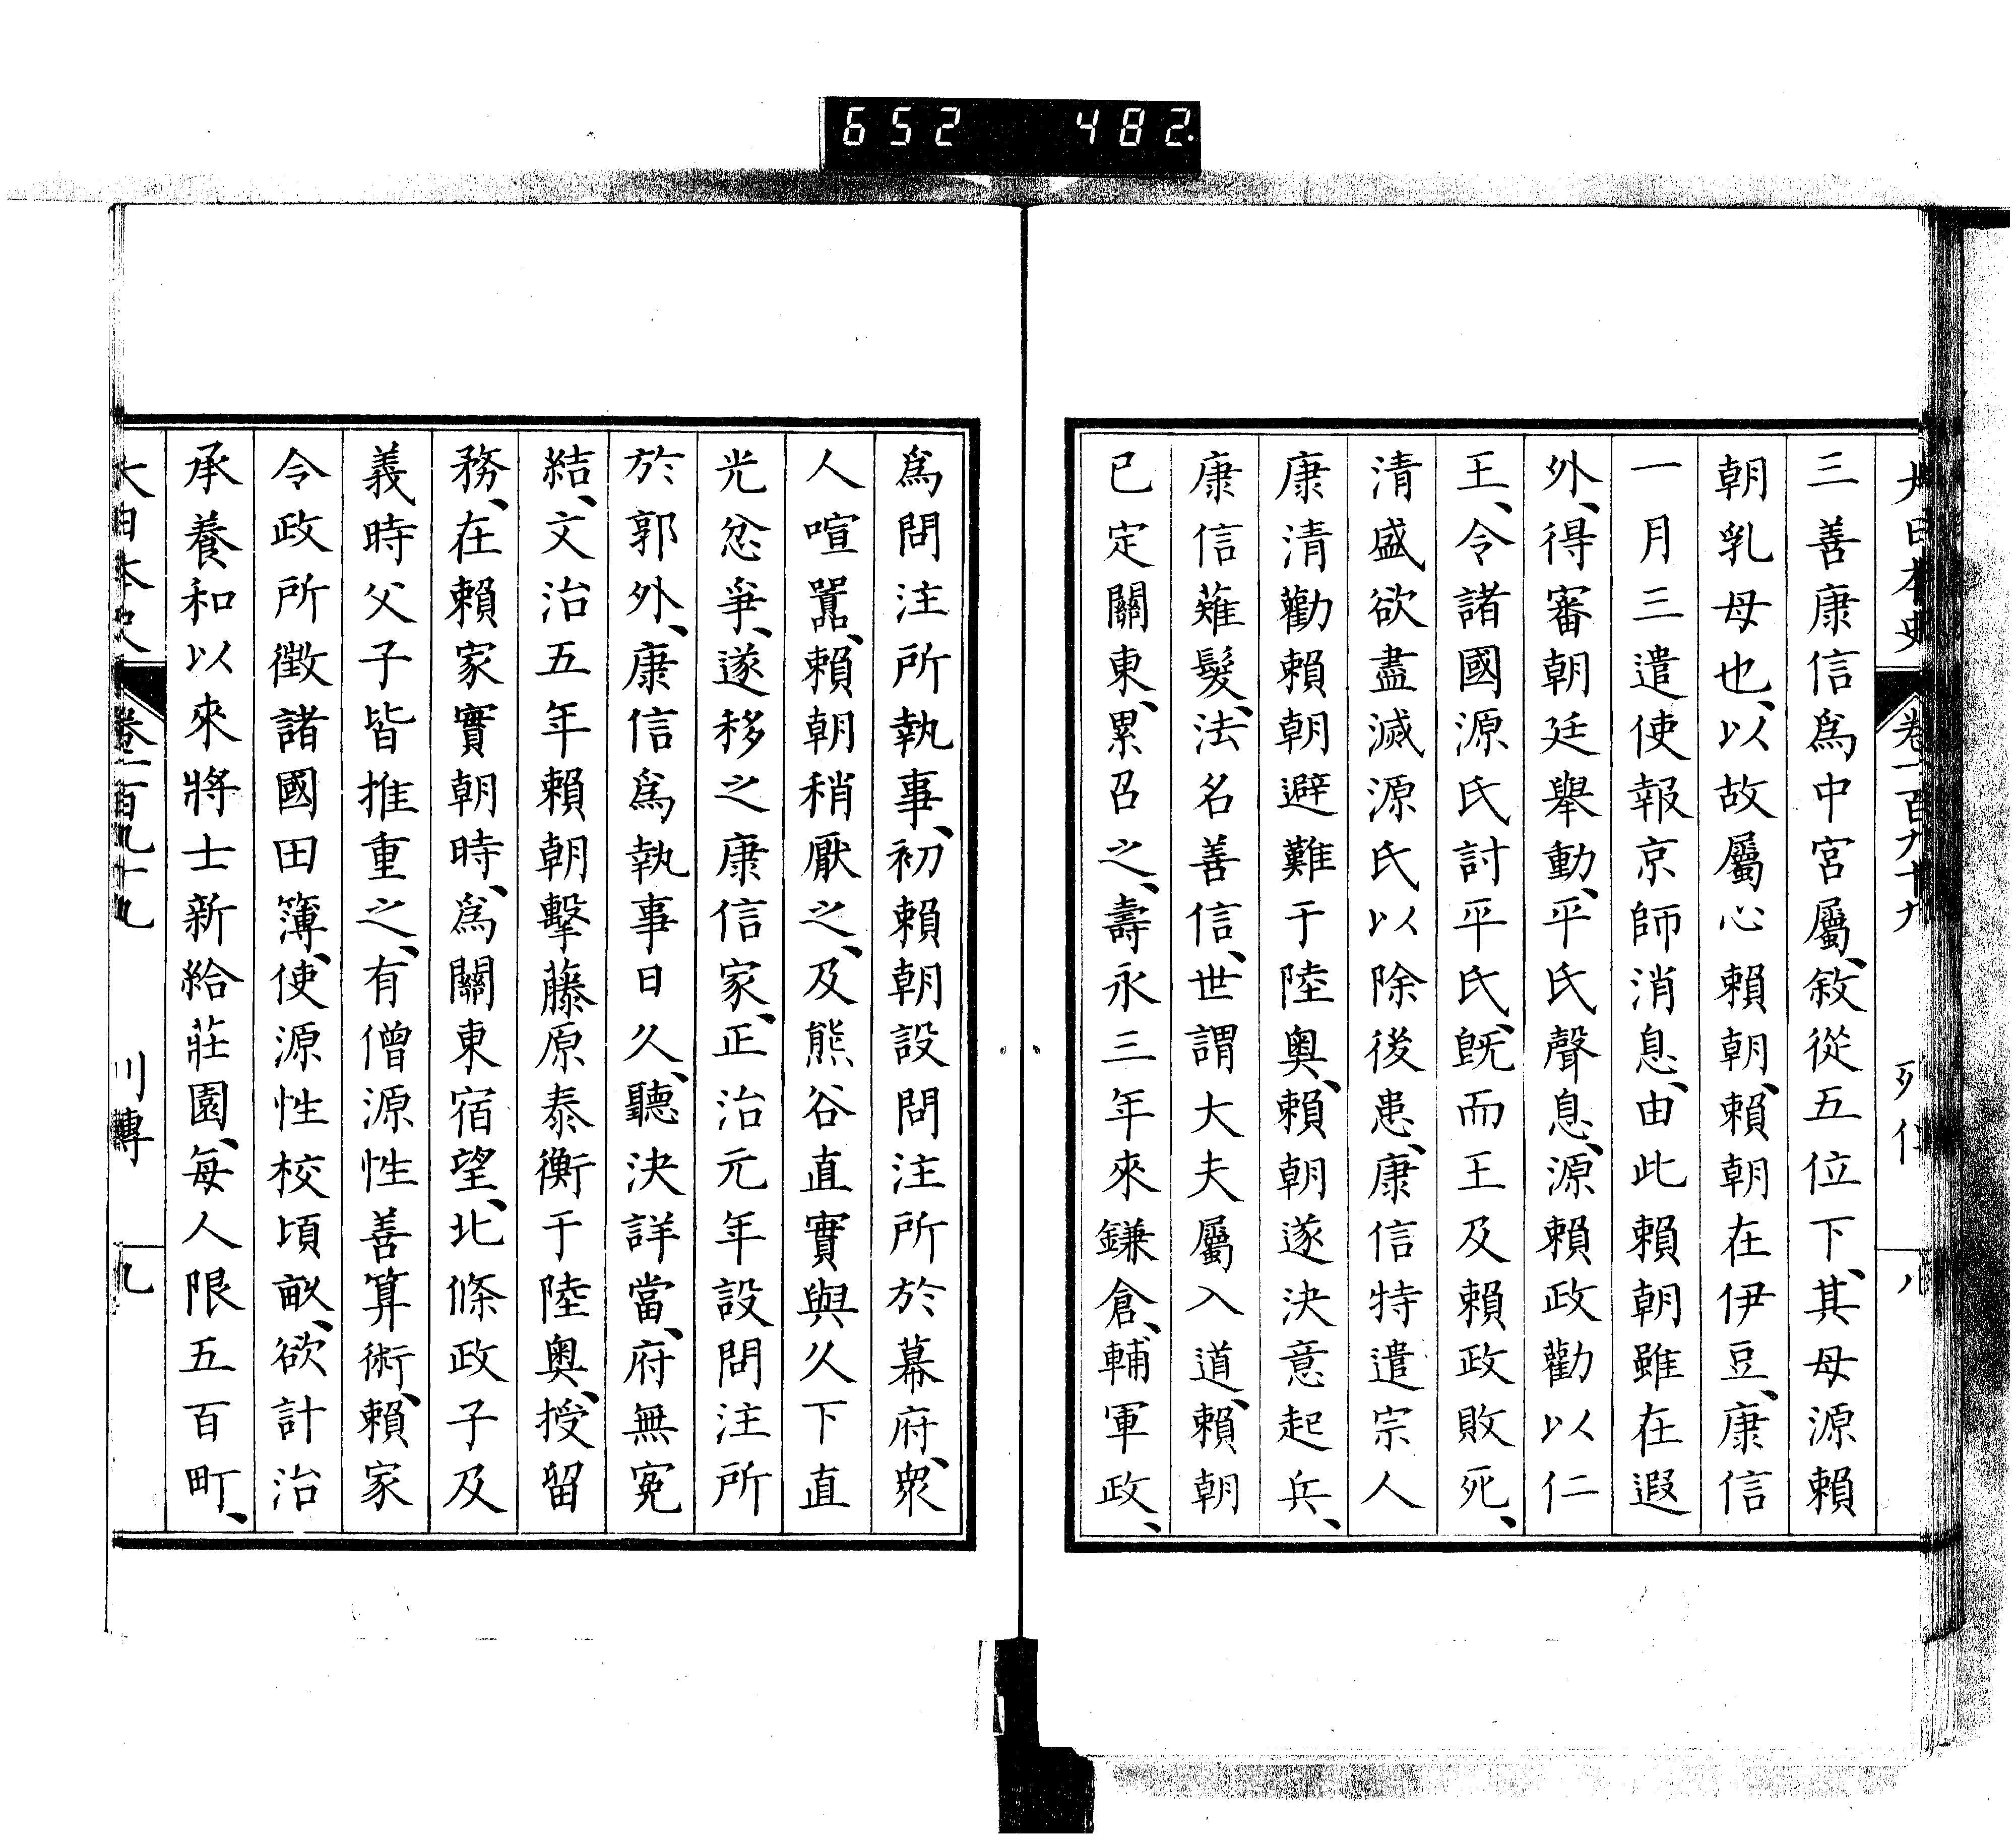 652 482
大日本史 卷一百九十九 列傳 八
三善康信爲中宮屬、敘從五位下、其母源賴
朝乳母也、以故屬心賴朝、賴朝在伊豆、康信
一月三遣使報京師消息、由此賴朝雖在遐
外、得審朝廷舉動、平氏聲息、源賴政勸以仁
王、令諸國源氏討平氏、旣而王及賴政敗死、
清盛欲盡滅源氏以除後患、康信特遣宗人
康清勸賴朝避難于陸奧、賴朝遂決意起兵、
康信薙髮、法名善信、世謂大夫屬入道、賴朝
已定關東、累召之、壽永三年來鎌倉、輔軍政、
爲問注所執事、初賴朝設問注所於幕府、衆
人喧囂、賴朝稍厭之、及熊谷直實與久下直
光忿爭、遂移之康信家、正治元年設問注所
於郭外、康信爲執事日久、聽決詳當、府無冤
結、文治五年賴朝擊藤原泰衡于陸奧、授留
務、在賴家實朝時、爲關東宿望、北條政子及
義時父子皆推重之、有僧源性善算術、賴家
令政所徵諸國田簿、使源性校頃畝、欲計治
承養和以來將士新給莊園、每人限五百町、
大日本史 卷一百九十九 列傳 九